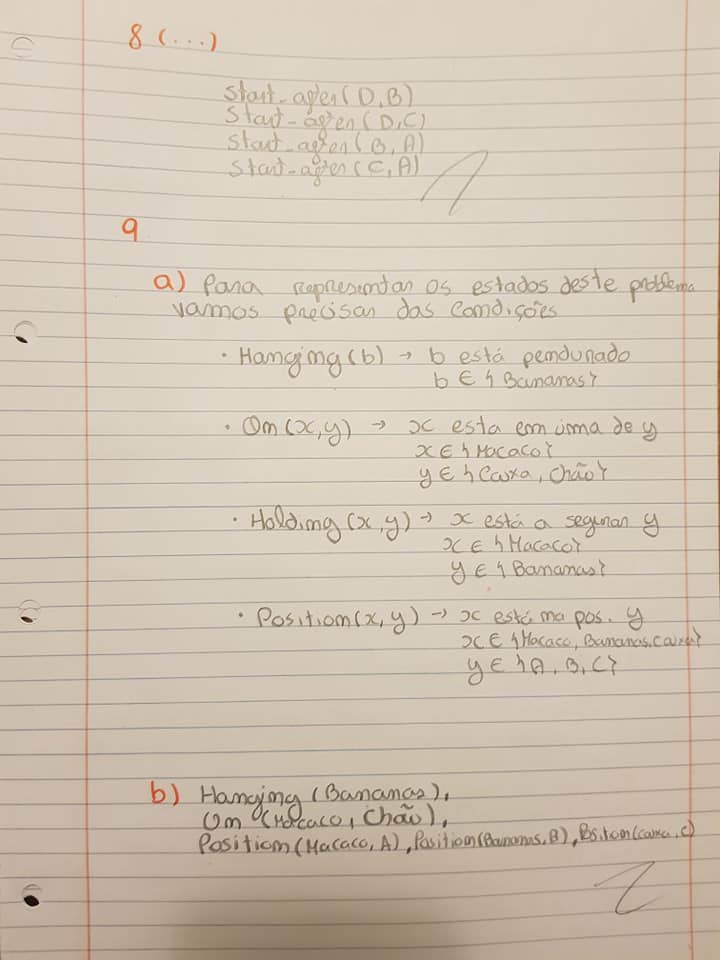 8 (...)
Start_after(D,B)
Start_after(D,C)
Start_after(B,A)
Start_after(C,A)
9
a) Para representar os estados deste problema
vamos precisar das condições
• Hanging(b) → b está pendurado
b ∈ {Bananas}
• On(x,y) → x esta em cima de y
x ∈ {Macaco}
y ∈ {Caixa, Chão}
• Holding(x,y) → x está a segurar y
x ∈ {Macaco}
y ∈ {Bananas}
• Position(x,y) → x está na pos. y
x ∈ {Macaco, Bananas, Caixa}
y ∈ {A, B, C}
b) Hanging(Bananas),
On(Macaco, Chão),
Position(Macaco, A), Position(Bananas, B), Position(caixa, C)